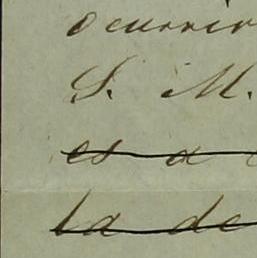 ocurrir
S. M.
es a
la de